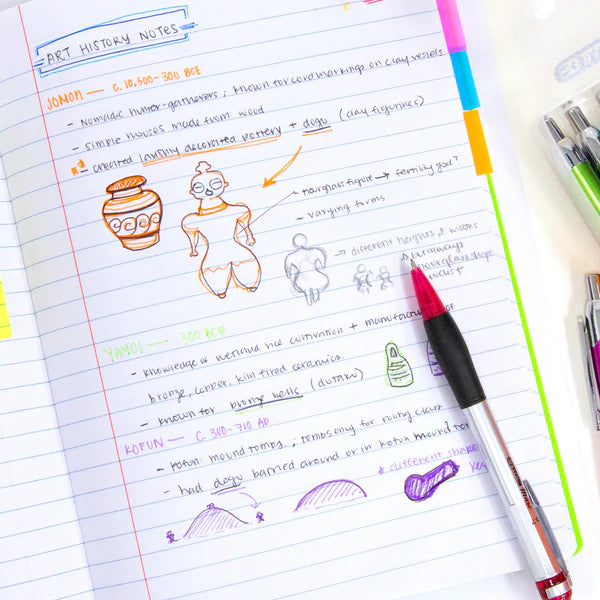 ART HISTORY NOTES
JOMON — C. 10,500-300 BCE
- Nomadic hunter-gatherers ; known for cord markings on clay vessels
- simple houses made from wood
- created lavishly decorated pottery + dogu (clay figurines)
hourglass figure → fertility god?
- varying forms
→ different heights & widths
always
hourglass shape
waist
YAYOI — 300 BCE
- knowledge of wetland rice cultivation + manufacture of
bronze, copper, kiln fired ceramics.
- known for bronze bells (dotaku)
KOFUN — C. 300-710 AD
- kofun: mound tombs ; tombs only for ruling class
- had dogu barried around or in kofun mound
* different shapes
key